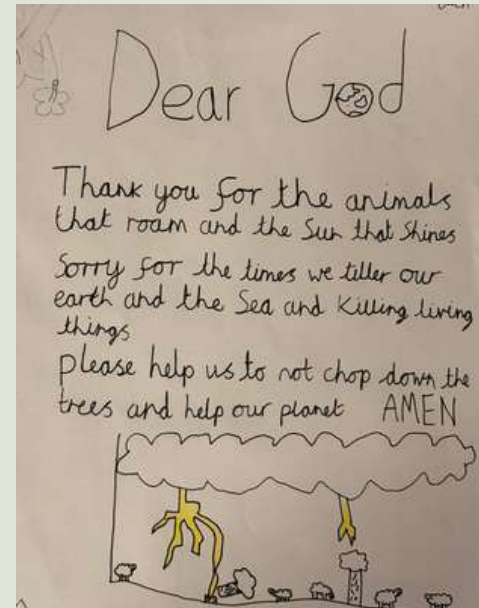 Dear God
Thank you for the animals
that roam and the Sun that Shines
Sorry for the times we litter our
earth and the Sea and Killing living
things
please help us to not chop down the
trees and help our planet AMEN